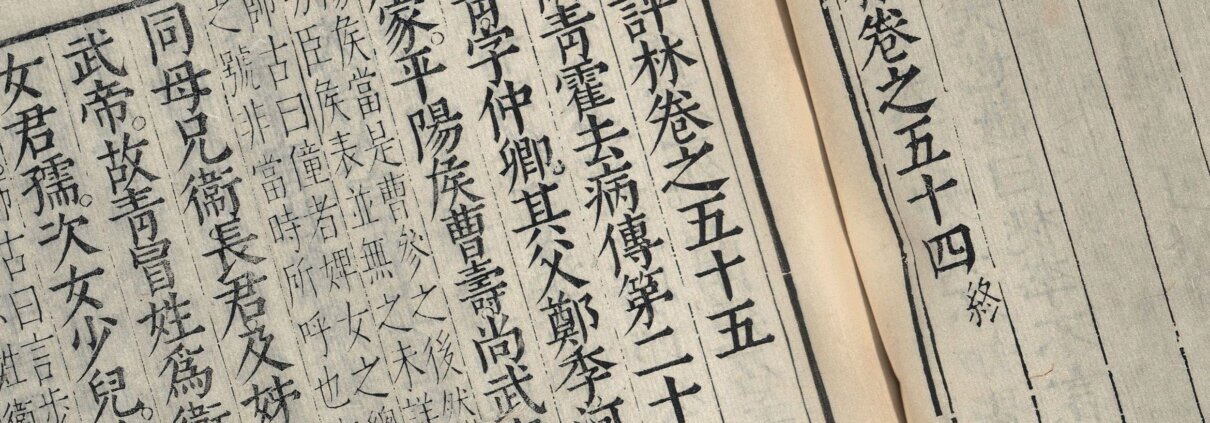 卷之五十四 終
評林卷之五十五
青霍去病傳第二十
青字仲卿。其父鄭季河
家。平陽侯曹壽尚武
侯當是曹參之後然
臣侯表並無之未詳
師古曰僮者婢女之總
之號非當時所呼也
同母兄衞長君及姊
武帝。故青冒姓爲衞
女君孺。次女少兒。
師古曰言步
姓衞